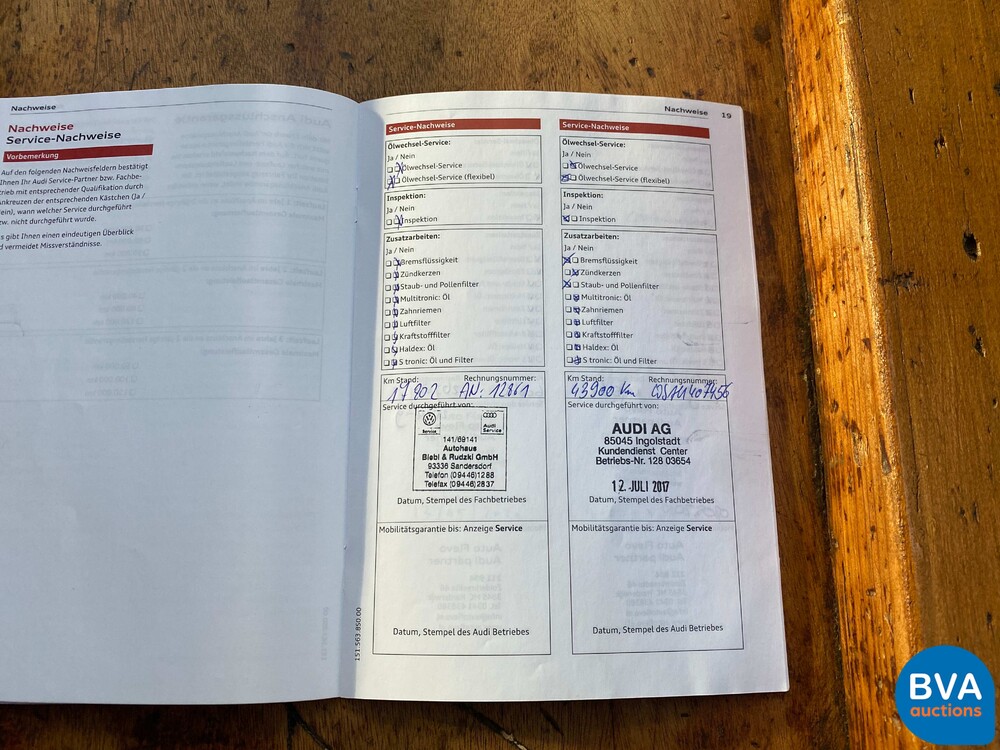 Nachweise
Nachweise
Service-Nachweise
Vorbemerkung
Auf den folgenden Nachweisfeldern bestätigt
Ihnen Ihr Audi Service-Partner bzw. Fachbe-
trieb mit entsprechender Qualifikation durch
Ankreuzen der entsprechenden Kästchen (Ja /
Nein), wann welcher Service durchgeführt
bzw. nicht durchgeführt wurde.
es gibt Ihnen einen eindeutigen Überblick
d vermeidet Missverständnisse.
Nachweise 19
Service-Nachweise
Ölwechsel-Service:
Ja / Nein
Ölwechsel-Service
Ölwechsel-Service (flexibel)
Inspektion:
Ja / Nein
Inspektion
Zusatzarbeiten:
Ja / Nein
Bremsflüssigkeit
Zündkerzen
Staub- und Pollenfilter
Multitronic: Öl
Zahnriemen
Luftfilter
Kraftstofffilter
Haldex: Öl
S tronic: Öl und Filter
Km Stand: Rechnungsnummer:
AN: 12861
Service durchgeführt von:
Service
Audi
Service
141/69141
Autohaus
Biebl & Rudzki GmbH
93336 Sandersdorf
Telefon (09446)1288
Telefax (09446)2837
Datum, Stempel des Fachbetriebes
Mobilitätsgarantie bis: Anzeige Service
Datum, Stempel des Audi Betriebes
Service-Nachweise
Ölwechsel-Service:
Ja / Nein
Ölwechsel-Service
Ölwechsel-Service (flexibel)
Inspektion:
Ja / Nein
Inspektion
Zusatzarbeiten:
Ja / Nein
Bremsflüssigkeit
Zündkerzen
Staub- und Pollenfilter
Multitronic: Öl
Zahnriemen
Luftfilter
Kraftstofffilter
Haldex: Öl
S tronic: Öl und Filter
Km Stand: Rechnungsnummer:
43900 Km
Service durchgeführt von:
AUDI AG
85045 Ingolstadt
Kundendienst Center
Betriebs-Nr. 128 03654
12. JULI 2017
Datum, Stempel des Fachbetriebes
Mobilitätsgarantie bis: Anzeige Service
Datum, Stempel des Audi Betriebes
151.563.850.00
BVA
auctions